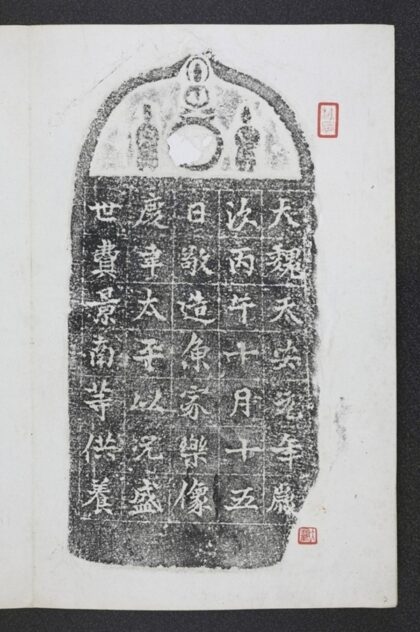 大魏天安元年歲
次丙午十月十五
日敬造魚家樂像
慶幸太平以况盛
世費景南等供養